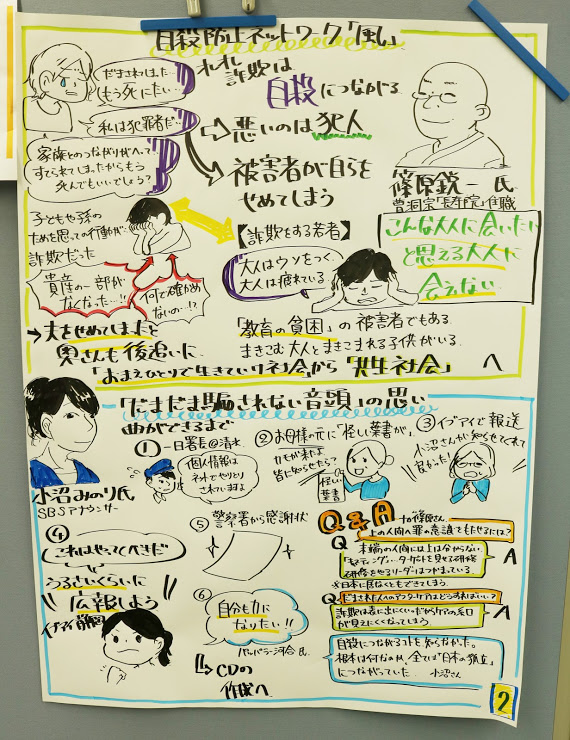 自殺防止ネットワーク「風」
だまされました
もう死にたい…
私は犯罪者だ…
家族とのつながりがへって
すてられてしまったからもう
死んでもいいでしょう?
詐欺は
自殺につながる
悪いのは犯人
被害者が自らを
せめてしまう
篠原鋭一氏
曹洞宗「長寿院」住職
子どもや孫の
ためを思っての行動が
詐欺だった
資産の一部が
なくなった…!!
何で確かめ
ないの…!?
→夫をせめてしまったと
奥さんも後追いに
【詐欺をする若者】
大人はウソをつく、
大人は疲れている
こんな大人に会いたい
と思える大人に
会えない
「教育の貧困」の被害者でもある
まきこむ大人とまきこまれる子供がいる
「おまえひとりで生きていけ社会」から「共生社会」へ
「だまだま騙されない音頭」の思い
曲ができるまで
小沼みのり氏
SBSアナウンサー
① 一日署長@清水
個人情報は
ネットでやりとり
されていますよ
② お母様の元に「怪しい葉書が」
カモが来たよ
皆に知らせたら?
怪しい
葉書
③ イブアイで報送
小沼さんが知らせてくれて
良かった!
④
これはやってくべきだ
うるさいくらいに
広報しよう
イブアイ
⑤ 警察署から感謝状
⑥
自分も力に
なりたい!!
パッパラー河合氏
CDの
作成へ
Q&A
to篠原さん
上の人間へ罪の意識をもたせるには?
Q
末端の人間には上は分からない
研修をやるリーダーはつかまっている
A
※日本に居なくともできてしまう
Q だまされた人のアフターケアはどうすればいい?
詐欺は表に出にくい だからケアの糸口
が見えにくくなってしまう
A
自殺につながるコトを知らなかった。
根本は何なのか、全ては「日本の孤立」
につながっていた 小沼さん
2